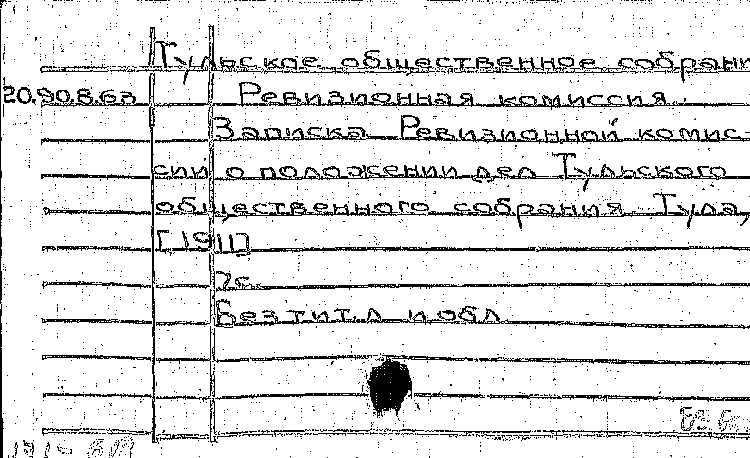 Тульское общественное собран
20.90.8.63 Ревизионная комиссия.
Записка Ревизионной комис-
сии о положении дел Тульского
общественного собрания. Тула,
[1911]
7с.
Без тит.л и обл